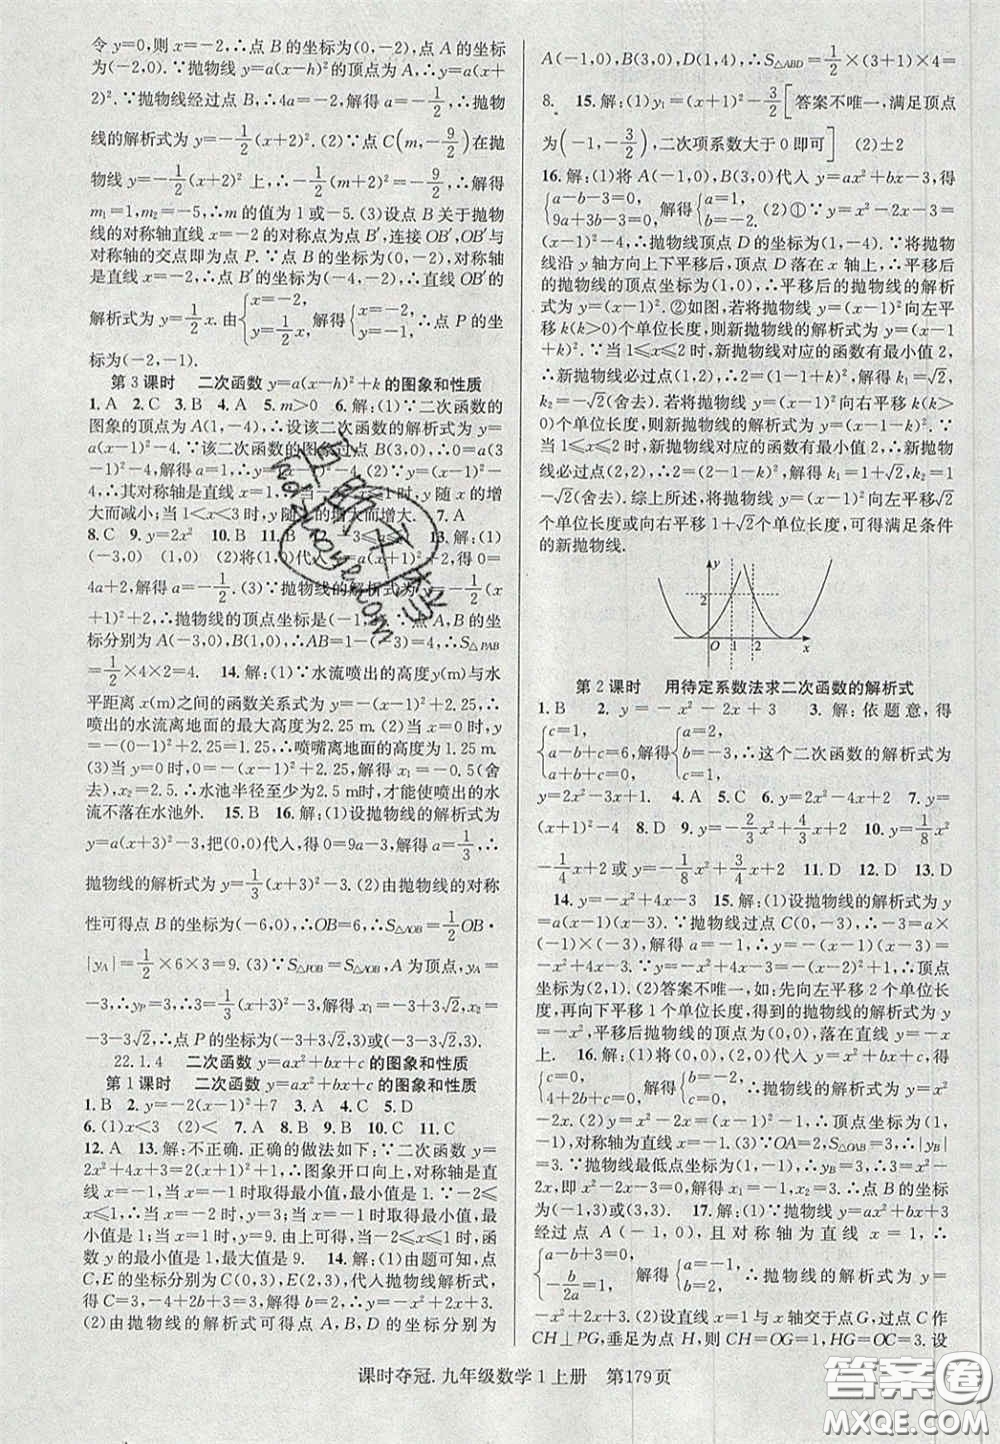 令 y=0,则 x=-2,∴点 B 的坐标为(0,-2),点 A 的坐标
为(-2,0).∵抛物线 y=a(x-h)²的顶点为 A,∴y=a(x+
2)².∵抛物线经过点 B,∴4a=-2,解得 a=-1/2,∴抛物
线的解析式为 y=-1/2(x+2)². (2)∵点 C(m,-9/2)在抛
物线 y=-1/2(x+2)² 上,∴-1/2(m+2)²=-9/2,∴解得
m₁=1,m₂=-5,∴m 的值为 1 或-5. (3)设点 B 关于抛物
线的对称轴直线 x=-2 的对称点为点 B′,连接 OB′,OB′与
对称轴的交点即为点 P.∵点 B 的坐标为(0,-2),对称轴
是直线 x=-2,∴点 B′的坐标为(-4,-2),∴直线 OB′的
解析式为 y=1/2x.由{x=-2, y=1/2x, 解得{x=-2, y=-1. ∴点 P 的坐
标为(-2,-1).
第 3 课时 二次函数 y=a(x-h)²+k 的图象和性质
1. A 2. C 3. B 4. A 5. m>0 6. 解:(1)∵二次函数的
图象的顶点为 A(1,-4),∴设该二次函数的解析式为 y=
a(x-1)²-4.∵该二次函数的图象过点 B(3,0),∴0=a(3
-1)²-4,解得 a=1,∴y=(x-1)²-4. (2)∵抛物线开口向上,
∴其对称轴是直线 x=1,∴当 x>1 时,y 随 x 的增
大而减小;当 1<x<3 时,y 随 x 的增大而增大. 7. A
8. C 9. y=2x² 10. B 11. B 13. 解:(1)
(-3,0) (1,0) (2)将(1,0)代入,得 0=
4a+2,解得 a=-1/2. (3)∵抛物线的解析式为 y=-1/2(x
+1)²+2,∴抛物线的顶点坐标是(-1,2).∵A,B 的坐
标分别为 A(-3,0),B(1,0),∴AB=1-(-3)=4,∴S△PAB
=1/2×4×2=4. 14. 解:(1)∵水流喷出的高度 y(m)与水
平距离 x(m)之间的函数关系式为 y=-(x-1)²+2.25,∴
喷出的水流离地面的最大高度为 2.25 m. (2)当 x=0 时,y
=-(0-1)²+2.25=1.25,∴喷嘴离地面的高度为 1.25 m.
(3)当 y=0 时,0=-(x-1)²+2.25,解得 x₁=-0.5(舍
去),x₂=2.5,∴水池半径至少为 2.5 m时,才能使喷出的水
流不落在水池外. 15. B 16. 解:(1)设抛物线的解析式为
y=a(x+3)²-3,把(0,0)代入,得 0=9a-3,解得 a=1/3,∴
抛物线的解析式为 y=1/3(x+3)²-3. (2)由抛物线的对称
性可得点 B 的坐标为(-6,0),∴OB=6,∴S△AOB=1/2OB·
|yA|=1/2×6×3=9. (3)∵S△POB=S△AOB,A 为顶点,yA=
-3,∴yP=3,∴3=1/3(x+3)²-3,解得 x₁=-3+3√2,x₂=
-3-3√2,∴点 P 的坐标为(-3+3√2,3)或(-3-3√2,3).
22.1.4 二次函数 y=ax²+bx+c 的图象和性质
第 1 课时 二次函数 y=ax²+bx+c 的图象和性质
1. B 2. y=-2(x-1)²+7 3. A 4. C 5. D
6. (1)x<3 (2)< 7. A 8. B 9. B 10. C 11. C
12. A 13. 解:不正确. 正确的做法如下:∵二次函数 y=
2x²+4x+3=2(x+1)²+1,∴图象开口向上,对称轴是直线
x=-1,当 x=-1 时取得最小值,最小值是 1.∵-2≤x
≤1,当 x=-1 时取得最小值,∴最小值是 1;当 x=1 时取得
最大值是 9. 由上可得,当-2≤x≤1 时,函
数 y 的最小值是 1,最大值是 9. 14. 解:(1)由题可知,点
C,E 的坐标分别为 C(0,3),E(2,3),代入抛物线解析式,
得 C=3,-4+2b+3=3,解得 b=2,∴y=-x²+2x+3.
(2)由抛物线的解析式可得点 A,B,D 的坐标分别为
A(-1,0),B(3,0),D(1,4),∴S△ABD=1/2×(3+1)×4=
8. 15. 解:(1)y₁=(x+1)²-3/2[答案不唯一,满足顶点
为(-1,-3/2),二次项系数大于 0 即可] (2)±2
16. 解:(1)将 A(-1,0),B(3,0)代入 y=ax²+bx-3,得
{a-b-3=0, 9a+3b-3=0, 解得{a=1, b=-2. (2)①∵y=x²-2x-3=(x-
1)²-4,∴抛物线顶点 D 的坐标为(1,-4).∵将抛物
线沿 y 轴方向上下平移后,顶点 D 落在 x 轴上,∴平移后
的抛物线的顶点坐标为(1,0),∴平移后的抛物线的解析
式为 y=(x-1)². ②如图,若将抛物线 y=(x-1)²向左平
移 k(k>0)个单位长度,则新抛物线的解析式为 y=(x-1
+k)².∵当 1≤x≤2 时,新抛物线对应的函数有最小值 2,
∴新抛物线必过点(1,2),∴2=(1-1+k)²,解得 k₁=√2,
k₂=-√2(舍去).若将抛物线 y=(x-1)²向右平移 k(k>
0)个单位长度,则新抛物线的解析式为 y=(x-1-k)².∵
当 1≤x≤2 时,新抛物线对应的函数有最小值 2,∴新抛物
线必过点(2,2),∴2=(2-1-k)²,解得 k₁=1+√2,k₂=1
-√2(舍去).综上所述,将抛物线 y=(x-1)²向左平移√2个
单位长度或向右平移 1+√2个单位长度,可得满足条件
的新抛物线.
y
2
O 1 2 x
第 2 课时 用待定系数法求二次函数的解析式
1. B 2. y=-x²-2x+3 3. 解:依题意,得
{c=1, a+b+c=6, a-b+c=0, 解得{a=2, b=-3, c=1, ∴这个二次函数的解析式为
y=2x²-3x+1. 4. A 5. C 6. y=2x²+2x-4 7. y=
(x+1)²-4 8. D 9. y=-2/3x²+4/3x+2 10. y=1/8x²
-1/4x+2 或 y=-1/8x²+3/4x+2 11. D 12. D 13. D
14. y=-x²+4x-3 15. 解:(1)设抛物线的解析式为 y
=a(x-1)(x-3).∵抛物线过点 C(0,-3),∴-3=a(-
1)×(-3),解得 a=-1,∴y=-x²+4x-3,∴顶点
坐标为(2,1). (2)答案不唯一,如:先向左平移 2 个单位长
度,再向下平移 1 个单位长度,得到的抛物线的解析式为
y=-x²,平移后抛物线的顶点为(0,0),落在直线 y=-x
上. 16. 解:(1)把 A(0,0),B(2,0)代入抛物线的解析式,得
{c=0, 4+2b+c=0, 解得{b=-2, c=0, ∴抛物线的解析式为 y=x²-
2x. (2)∵y=x²-2x=(x-1)²-1,∴顶点坐标为(1,
-1),对称轴为直线 x=1. (3)∵OA=2,S△OAB=3,∴|yB|
=3.∵抛物线最低点坐标为(1,-1),∴yB=3,∴当 y=3
时,即 x²-2x=3,解得 x₁=-1,x₂=3.∴点 B 的坐标为
(-1,3)或(3,3). 17. 解:(1)∵抛物线 y=ax²+bx+3
经过点 A(-1,0),且对称轴为直线 x=1,∴
{a-b+3=0, -b/2a=1, 解得{a=-1, b=2, ∴抛物线的解析式为 y=
-x²+2x+3. (2)设直线 x=1 与 x 轴交于点 G,过点 C 作
CH⊥PG,垂足为点 H,则 CH=OG=1,HG=OC=3. 设
课时夺冠. 九年级数学 1 上册 第179页
答案圈
MXQE.COM